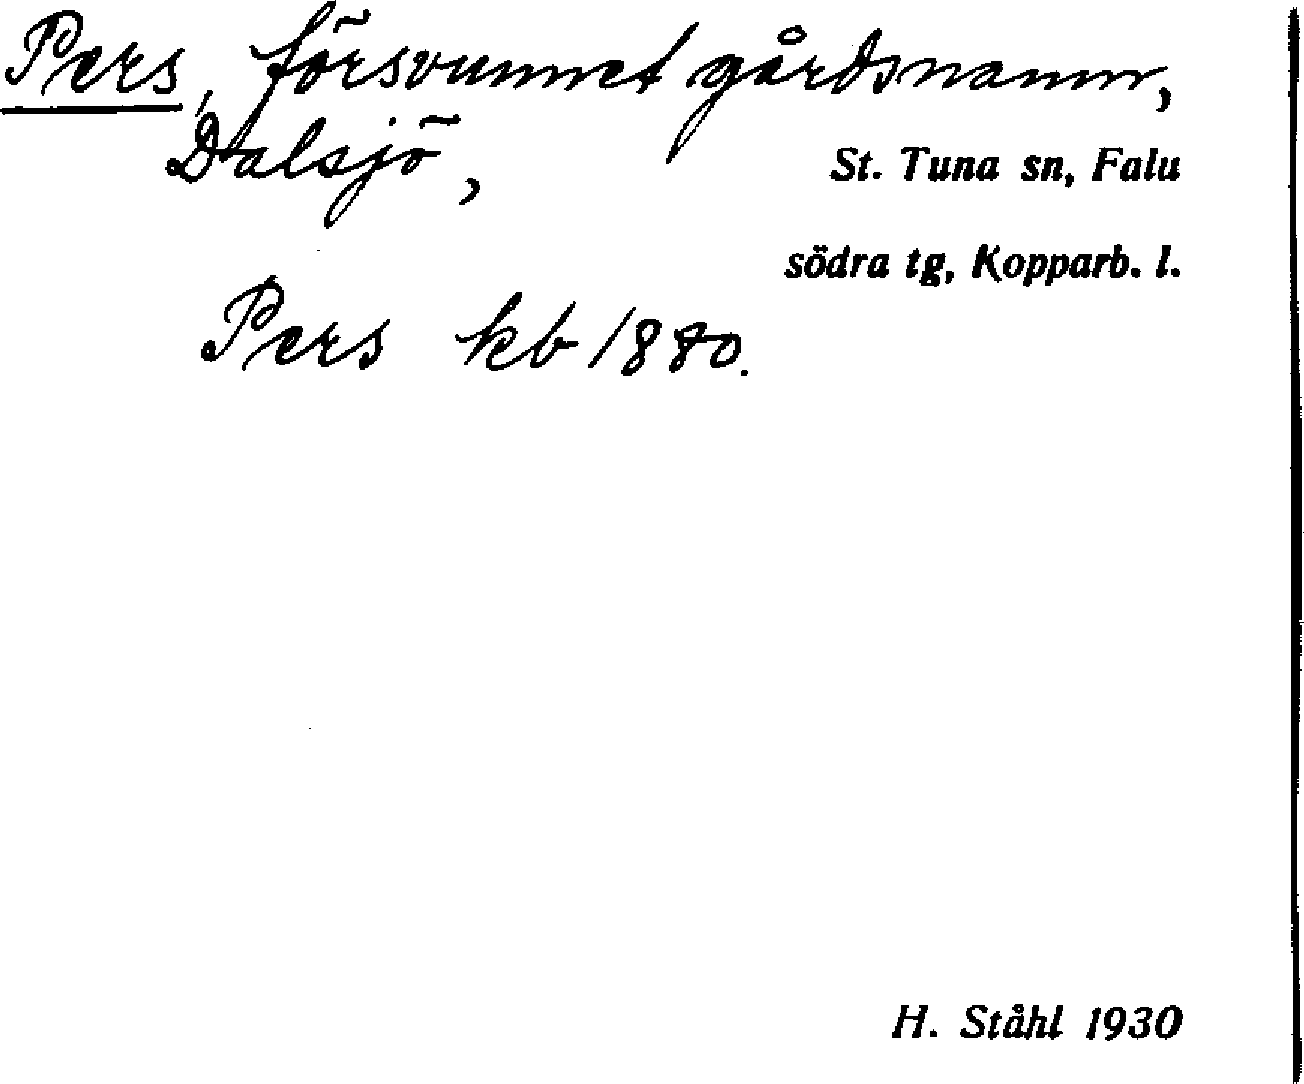 Pers, försvunnet gårdsnamn,
Dalsjö,
St. Tuna sn, Falu
södra tg, Kopparb. l.
Pers kb 1880.
H. Ståhl 1930